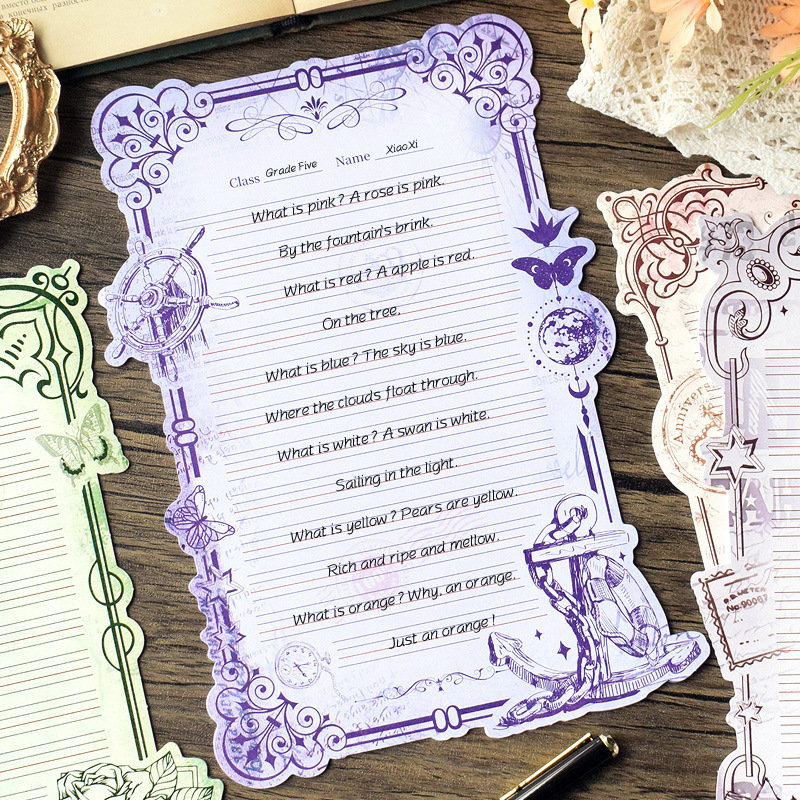 вместо
конечных разносте
Class Grade Five Name XiaoXi
What is pink? A rose is pink.
By the fountain's brink.
What is red? A apple is red.
On the tree.
What is blue? The sky is blue.
Where the clouds float through.
What is white? A swan is white.
Sailing in the light.
What is yellow? Pears are yellow.
Rich and ripe and mellow.
What is orange? Why, an orange.
Just an orange!
Annivers
No.90087